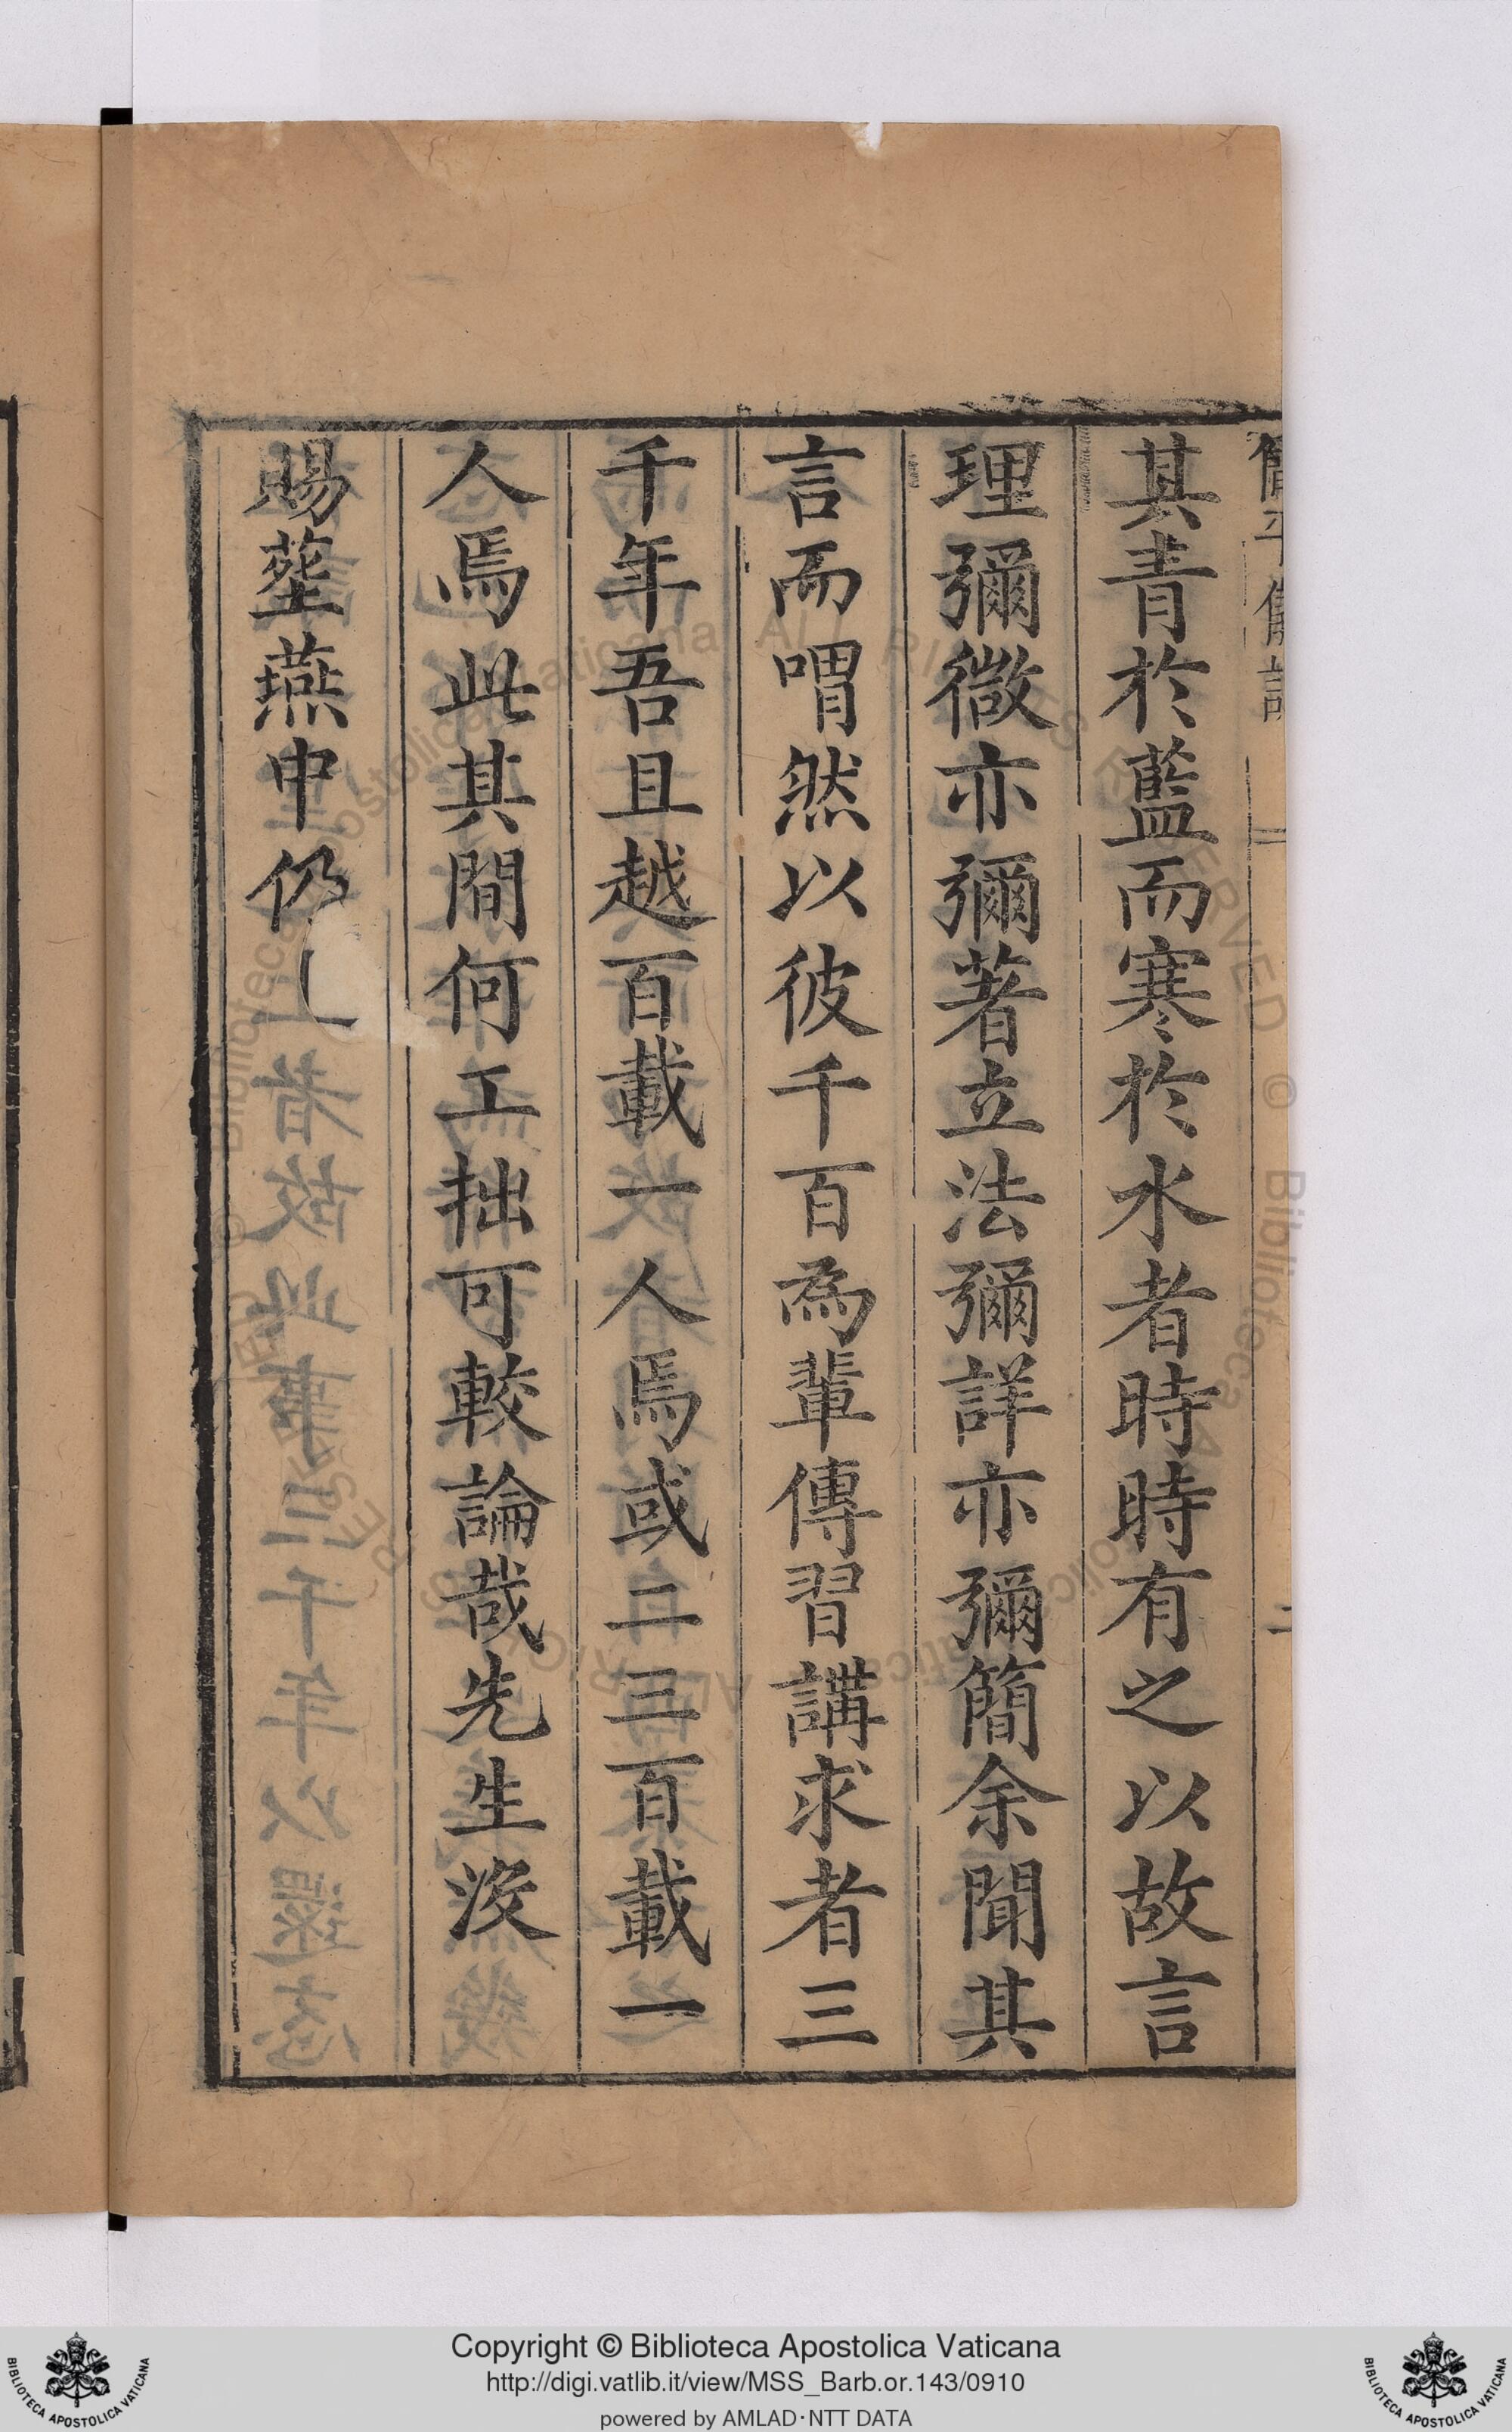 簡平儀說 二
其青於藍而寒於水者時時有之以故言
理彌微亦彌著立法彌詳亦彌簡余聞其
言而喟然以彼千百為輩傳習講求者三
千年吾且越百載一人焉或二三百載一
人焉此其間何工拙可較論哉先生沒
賜塟燕中仍
Copyright © Biblioteca Apostolica Vaticana
http://digi.vatlib.it/view/MSS_Barb.or.143/0910
powered by AMLAD·NTT DATA
BIBLIOTECA APOSTOLICA VATICANA
BIBLIOTECA APOSTOLICA VATICANA